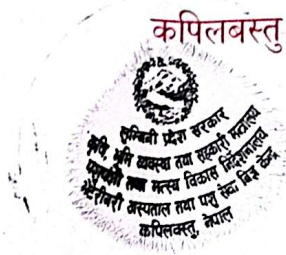 कपिलबस्तु
लुम्बिनी प्रदेश सरकार
कृषि, भूमि व्यवस्था तथा सहकारी मन्त्रालय
पशुपन्छी तथा मत्स्य विकास निर्देशनालय
भेटेरीनरी अस्पताल तथा पशु सेवा विज्ञ केन्द्र
कपिलवस्तु, नेपाल